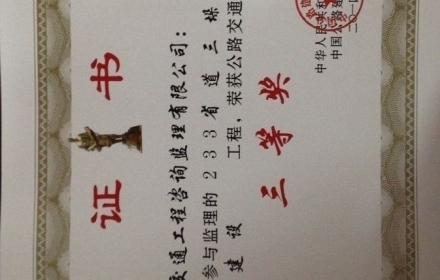 证书
通工程咨询监理有限公司：
参与监理的233省道三垛
建设 工程，荣获公路交通
三等奖
中华人民共和
中国公路建
二〇一